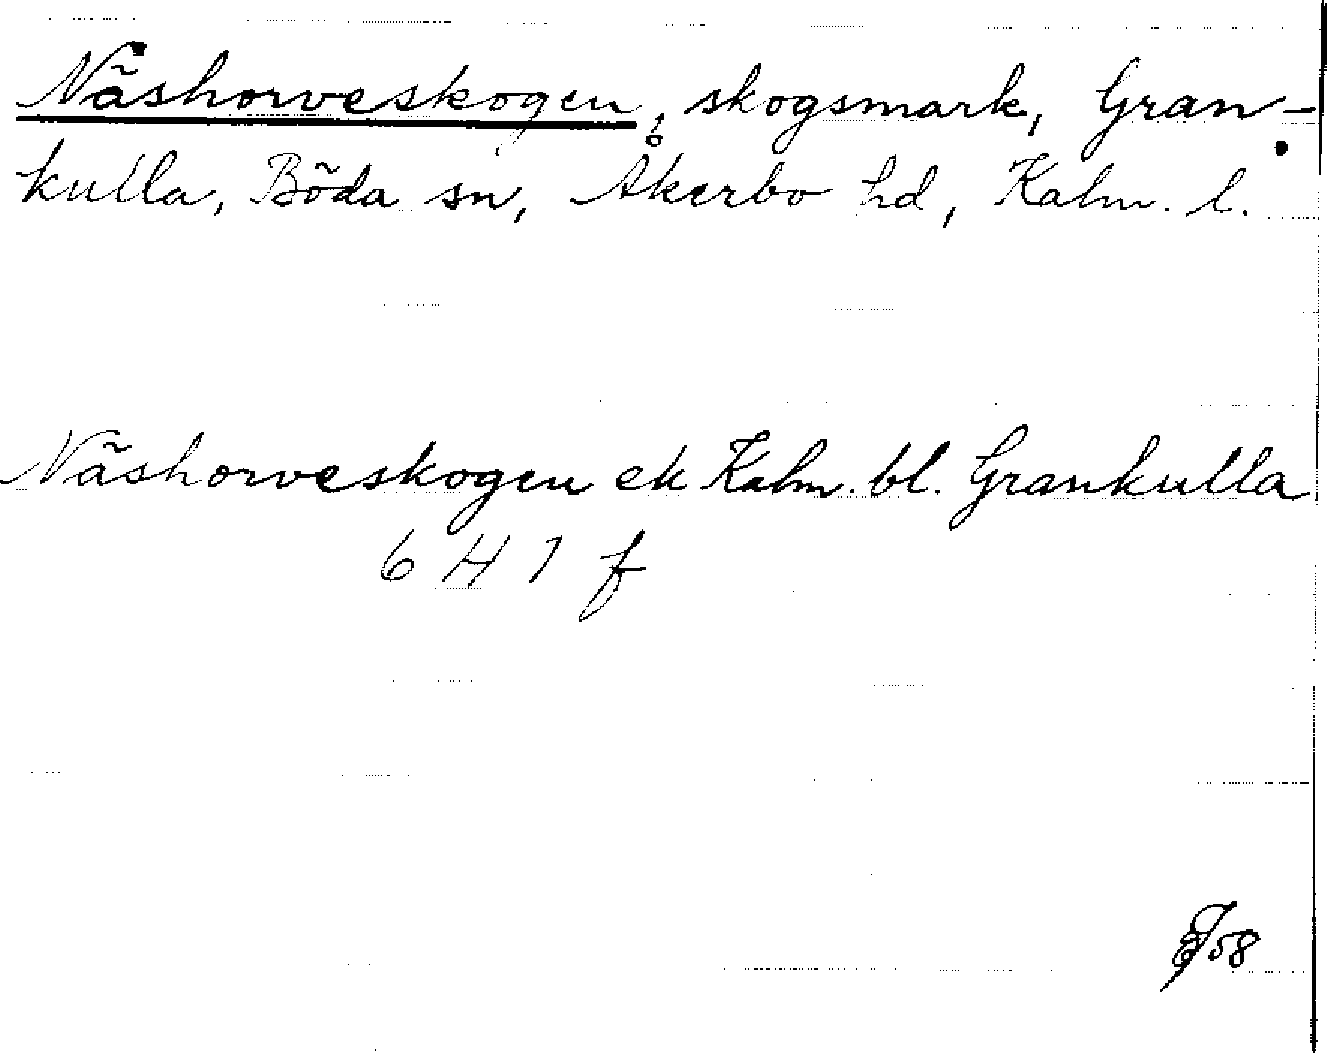 Näshorveskogen, skogsmark, Gran-
kulla, Böda sn, Åkerbo hd, Kalm. l.
Näshorveskogen ek Kalm. bl. Grankulla
6 H 1 f
58